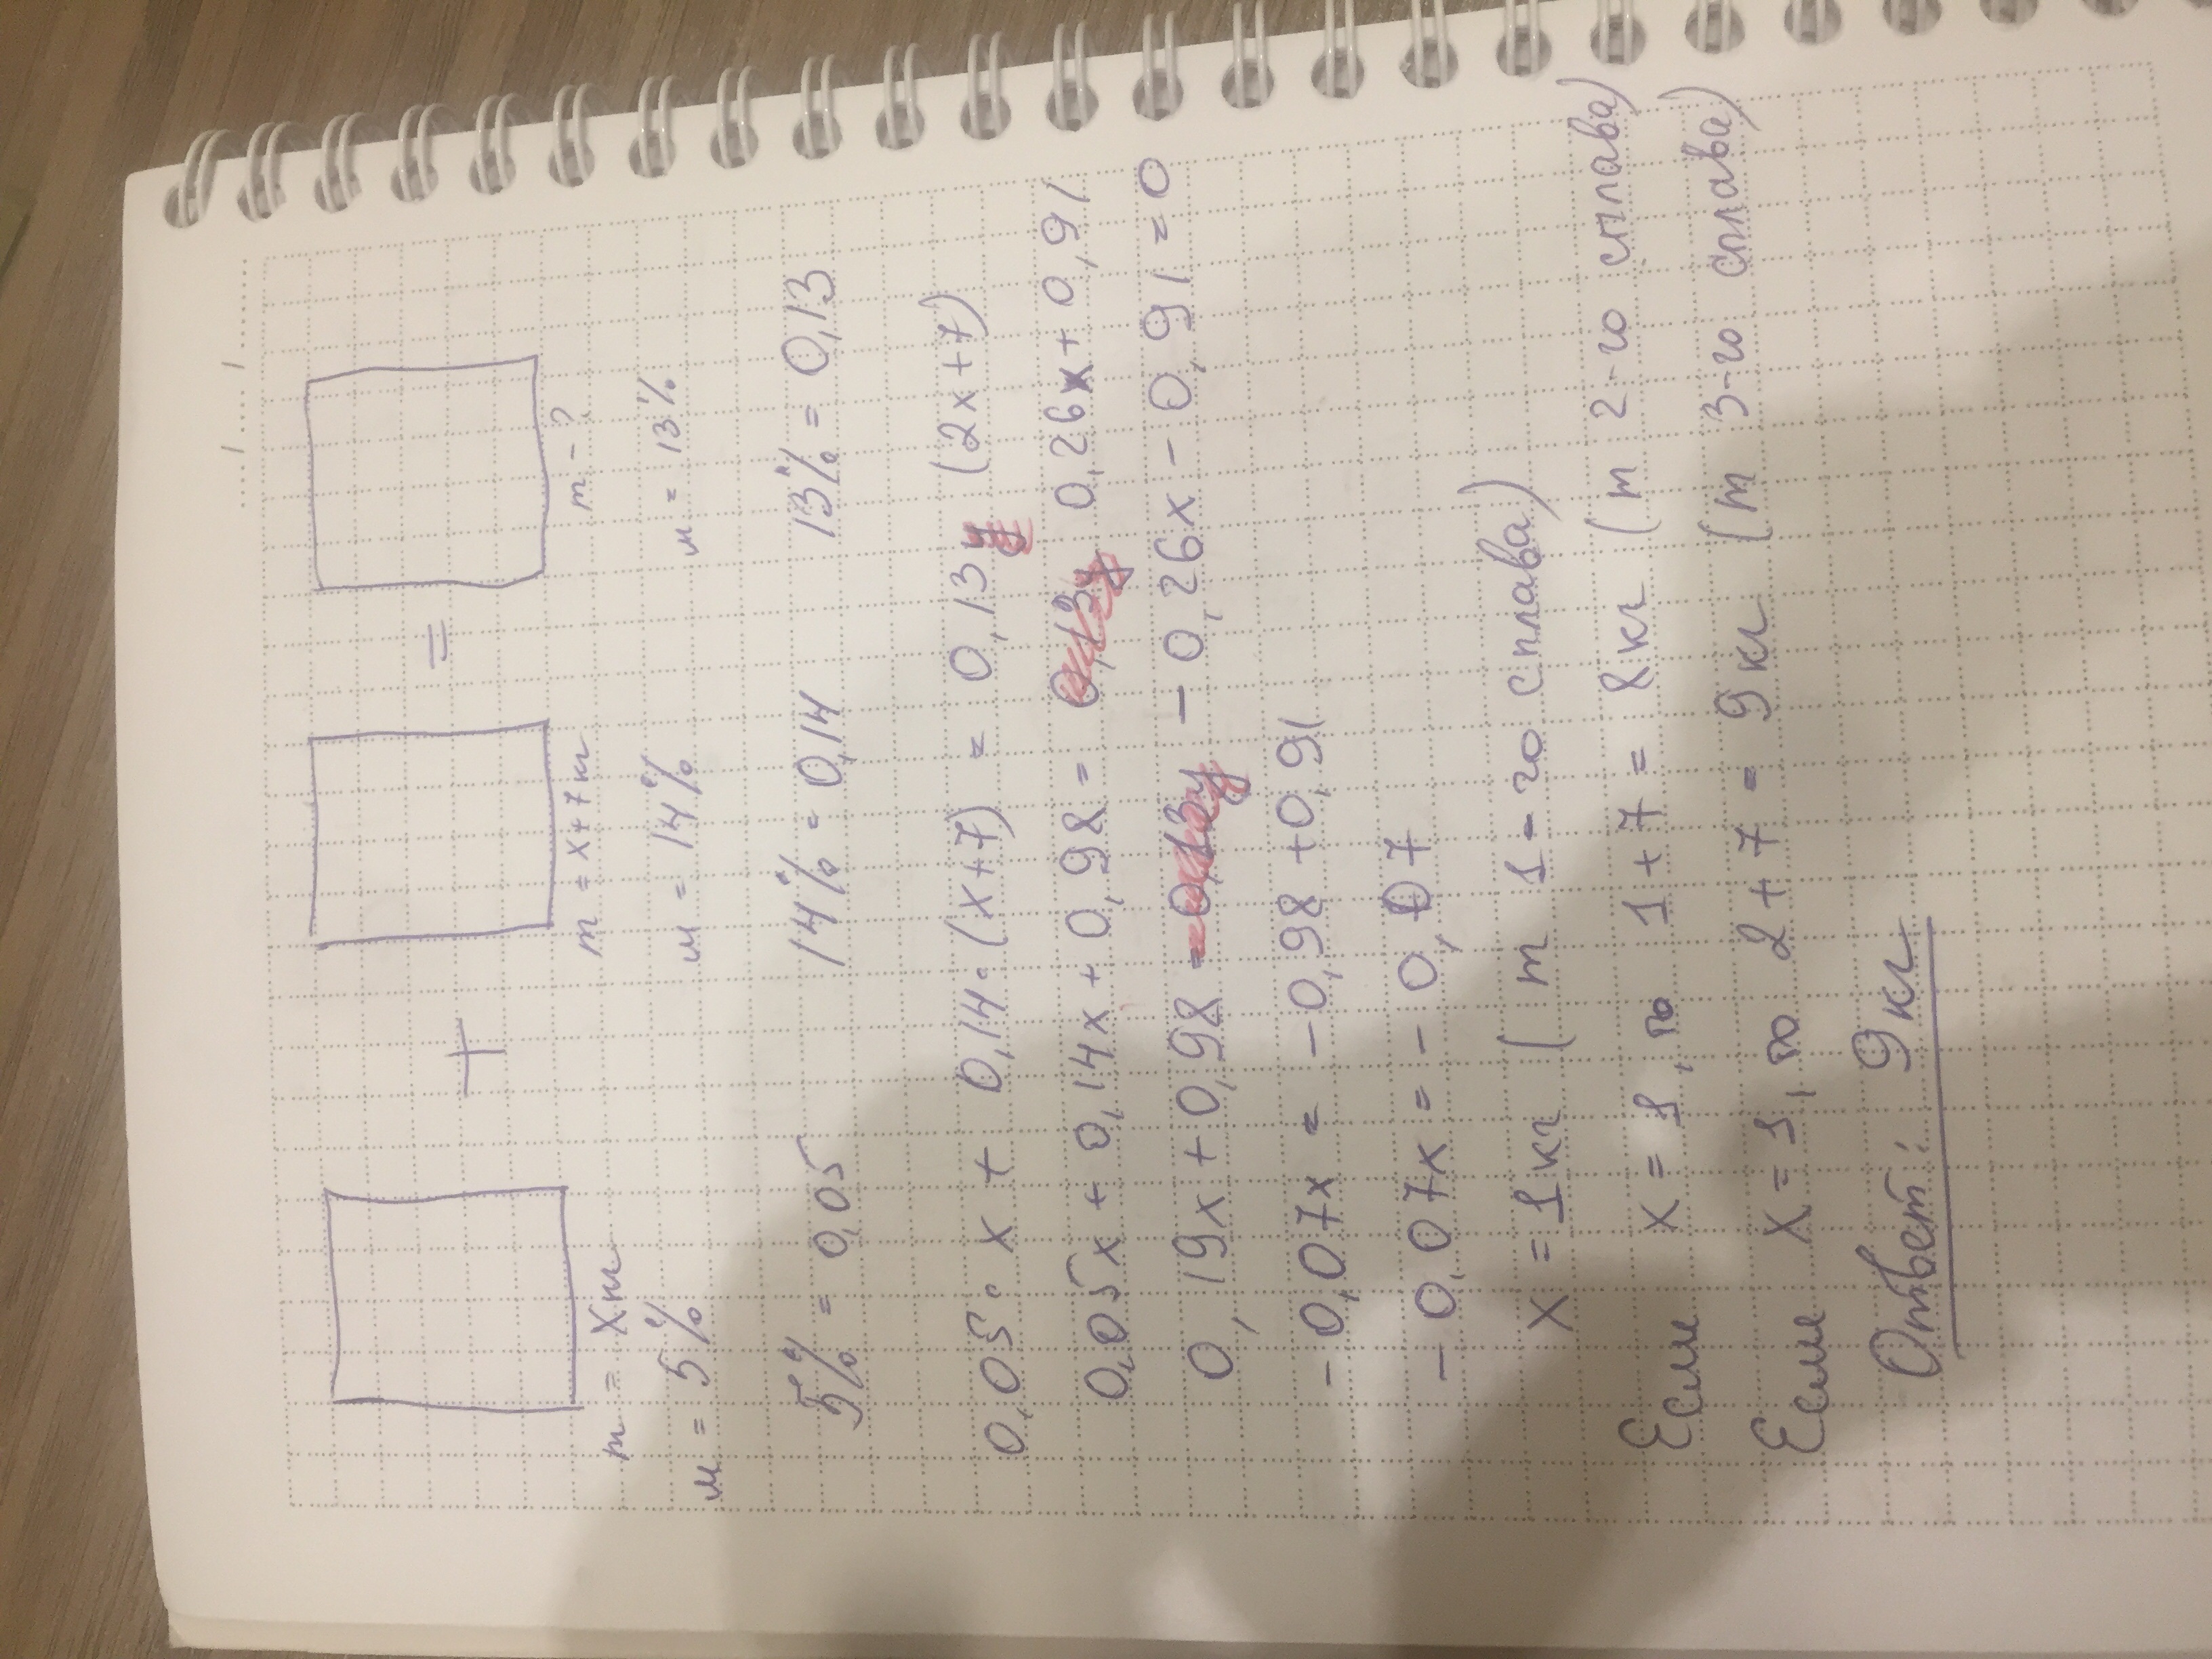 m = x кг m = x + 7 кг m - ?
м = 5% м = 14% м = 13%
5% = 0,05 14% = 0,14 13% = 0,13
0,05 · x + 0,14 · (x+7) = 0,13 (2x+7)
0,05x + 0,14x + 0,98 = 0,26x + 0,91
0,19x + 0,98 - 0,26x - 0,91 = 0
-0,07x = -0,98 + 0,91
-0,07x = -0,07
x = 1 кг (m 1-го сплава)
Если x = 1, то 1 + 7 = 8 кг (m 2-го сплава)
Если x = 1, то 2 + 7 = 9 кг (m 3-го сплава)
Ответ: 9 кг